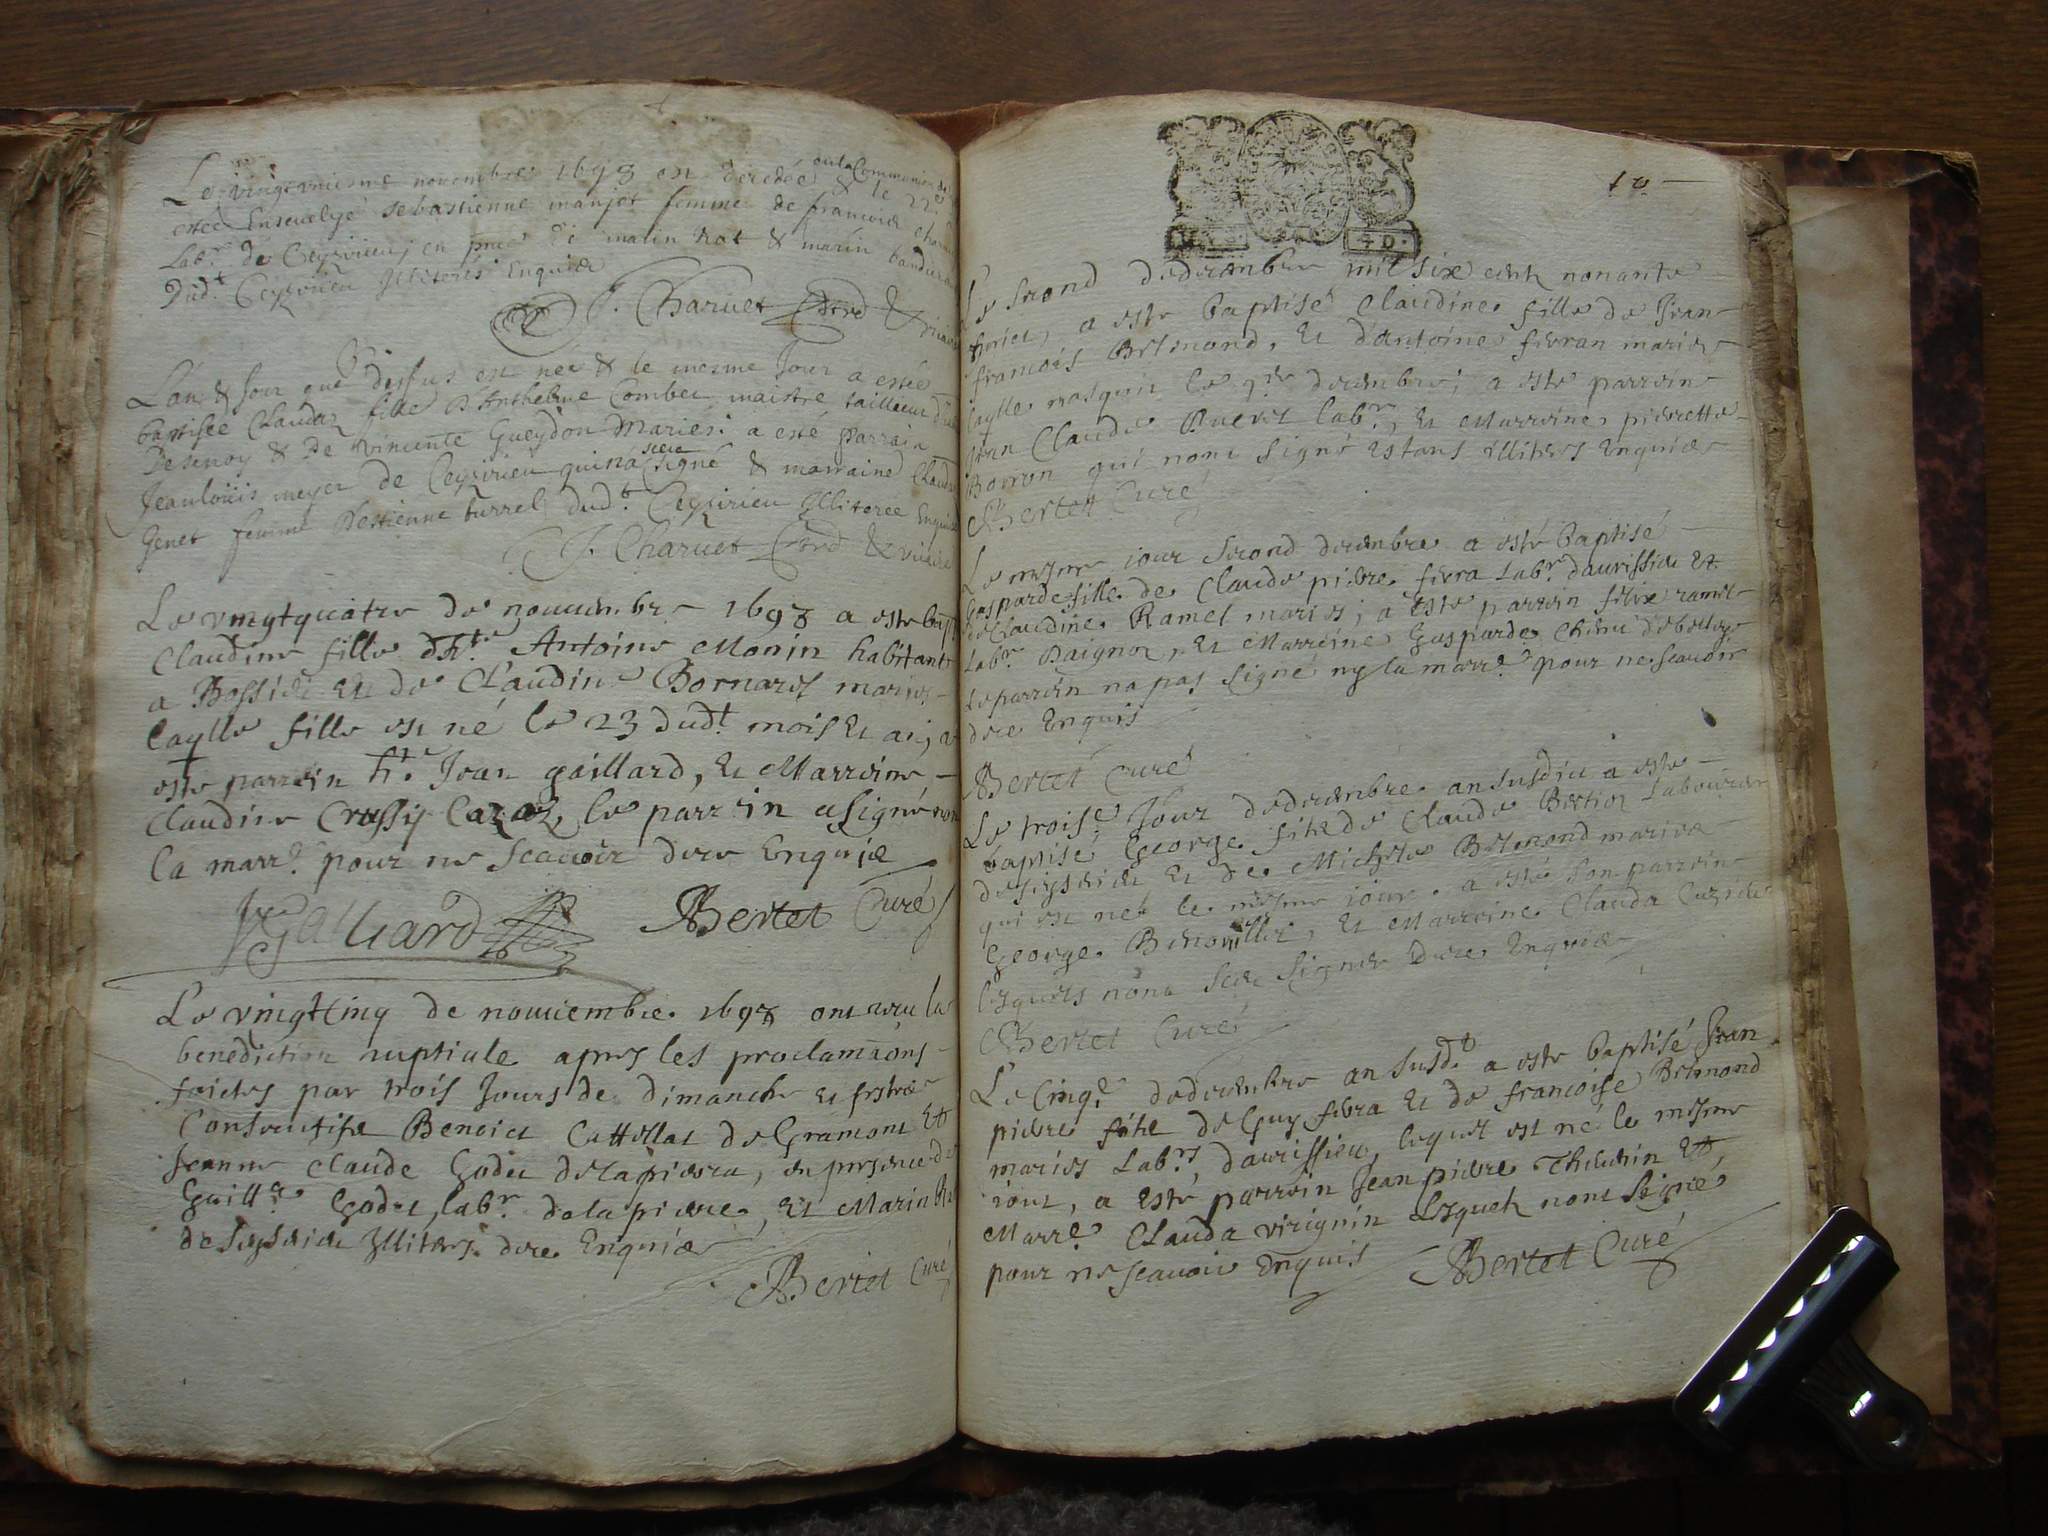 Le vingt uniesme novembre 1698 est decedée & le 22e
en la Communion de
estée Ensevelye sebastienne manjot femme de francois
Labr. de Ceyzirieu, en pnce de matin Rat & marin
Dud.t Ceyzirieu Illiterés Enquis
J. Charvet & vicaire
L'an & Jour que dessus est née & le mesme Jour a estée
baptisée Clauda fille D'Anthelme Combet maistre tailleur
& de vincente Gueydon Mariés. a esté parrain
Jeanlouis meyer de Ceyzirieu qui na sceu signé & marraine Clauda
Genet femme d'estienne burrel dud.t Ceyzirieu Illiteree Enquis
J. Charvet & vicaire
Le vingtquatre de nouembre 1698 a este bap
Claudine fille d'h.te Antoine Monin habitant
a Bossieu Et de Claudine Bornard maries
laqlle fille est né le 23 dud.t mois Et an, a
este parrein h.te Jean gaillard, Et Marreine
Claudine le parrein a signé non
la marr.e pour ne scauoir dere Enquise
JGalliard ABertet Curé
Le vingtcinq de nouuembre 1698 ont receu la
benediction nuptiale apres les proclamaons
faictes par trois Jours de dimanche et festes
Consecutifs Benoict Cattellat de Gramont Et
Jeanne Claude Godet de la pierre, en presence de
Guill.e Godet, labr. de la pierre, Et Marin
de Seysérieu Illiteres dere Enquis
ABertet Curé
10
Le second de decembre mil six cent nonante
huict, a este baptisé Claudine fille de Jean
francois Belmond, Et d'antoine fevran maries
laqlle nasquit le 1er decembre, a este parrein
Jean Claude labr, Et Marreine pierrette
Borron qui nont signé estans illiteres Enquis
ABertet Curé
Le mesme iour second decembre a esté baptisé
Gasparde fille de Claude pierre fevra Labr. d'auissieu Et
de Claudine Ramel maries, a este parrein felix ramel
Labr. Et Marreine Gasparde
Le parrein na pas signé ny la marr.e pour ne scauoir
dere Enquis
ABertet Curé
Le trois.e Jour de decembre an susdict a este
baptisé George fils de Claude Bertion Laboureur
de Seysérieu Et de Michele Belmond maries
qui est né le mesme iour. a esté son parrein
George Et Marreine Clauda
lesquels nont sceu signer dere Enquis
ABertet Curé
Le Cinq.e de decembre an susd.t a este baptisé Jean
pierre fils de Guy fevra Et de francoise Belmond
maries Labrs d'auissieu, lequel est né le mesme
iour, a esté parrein Jean pierre Thevenin Et
Marr.e Clauda virignin Lesquels nont Seigné
pour ne scauoir Enquis ABertet Curé